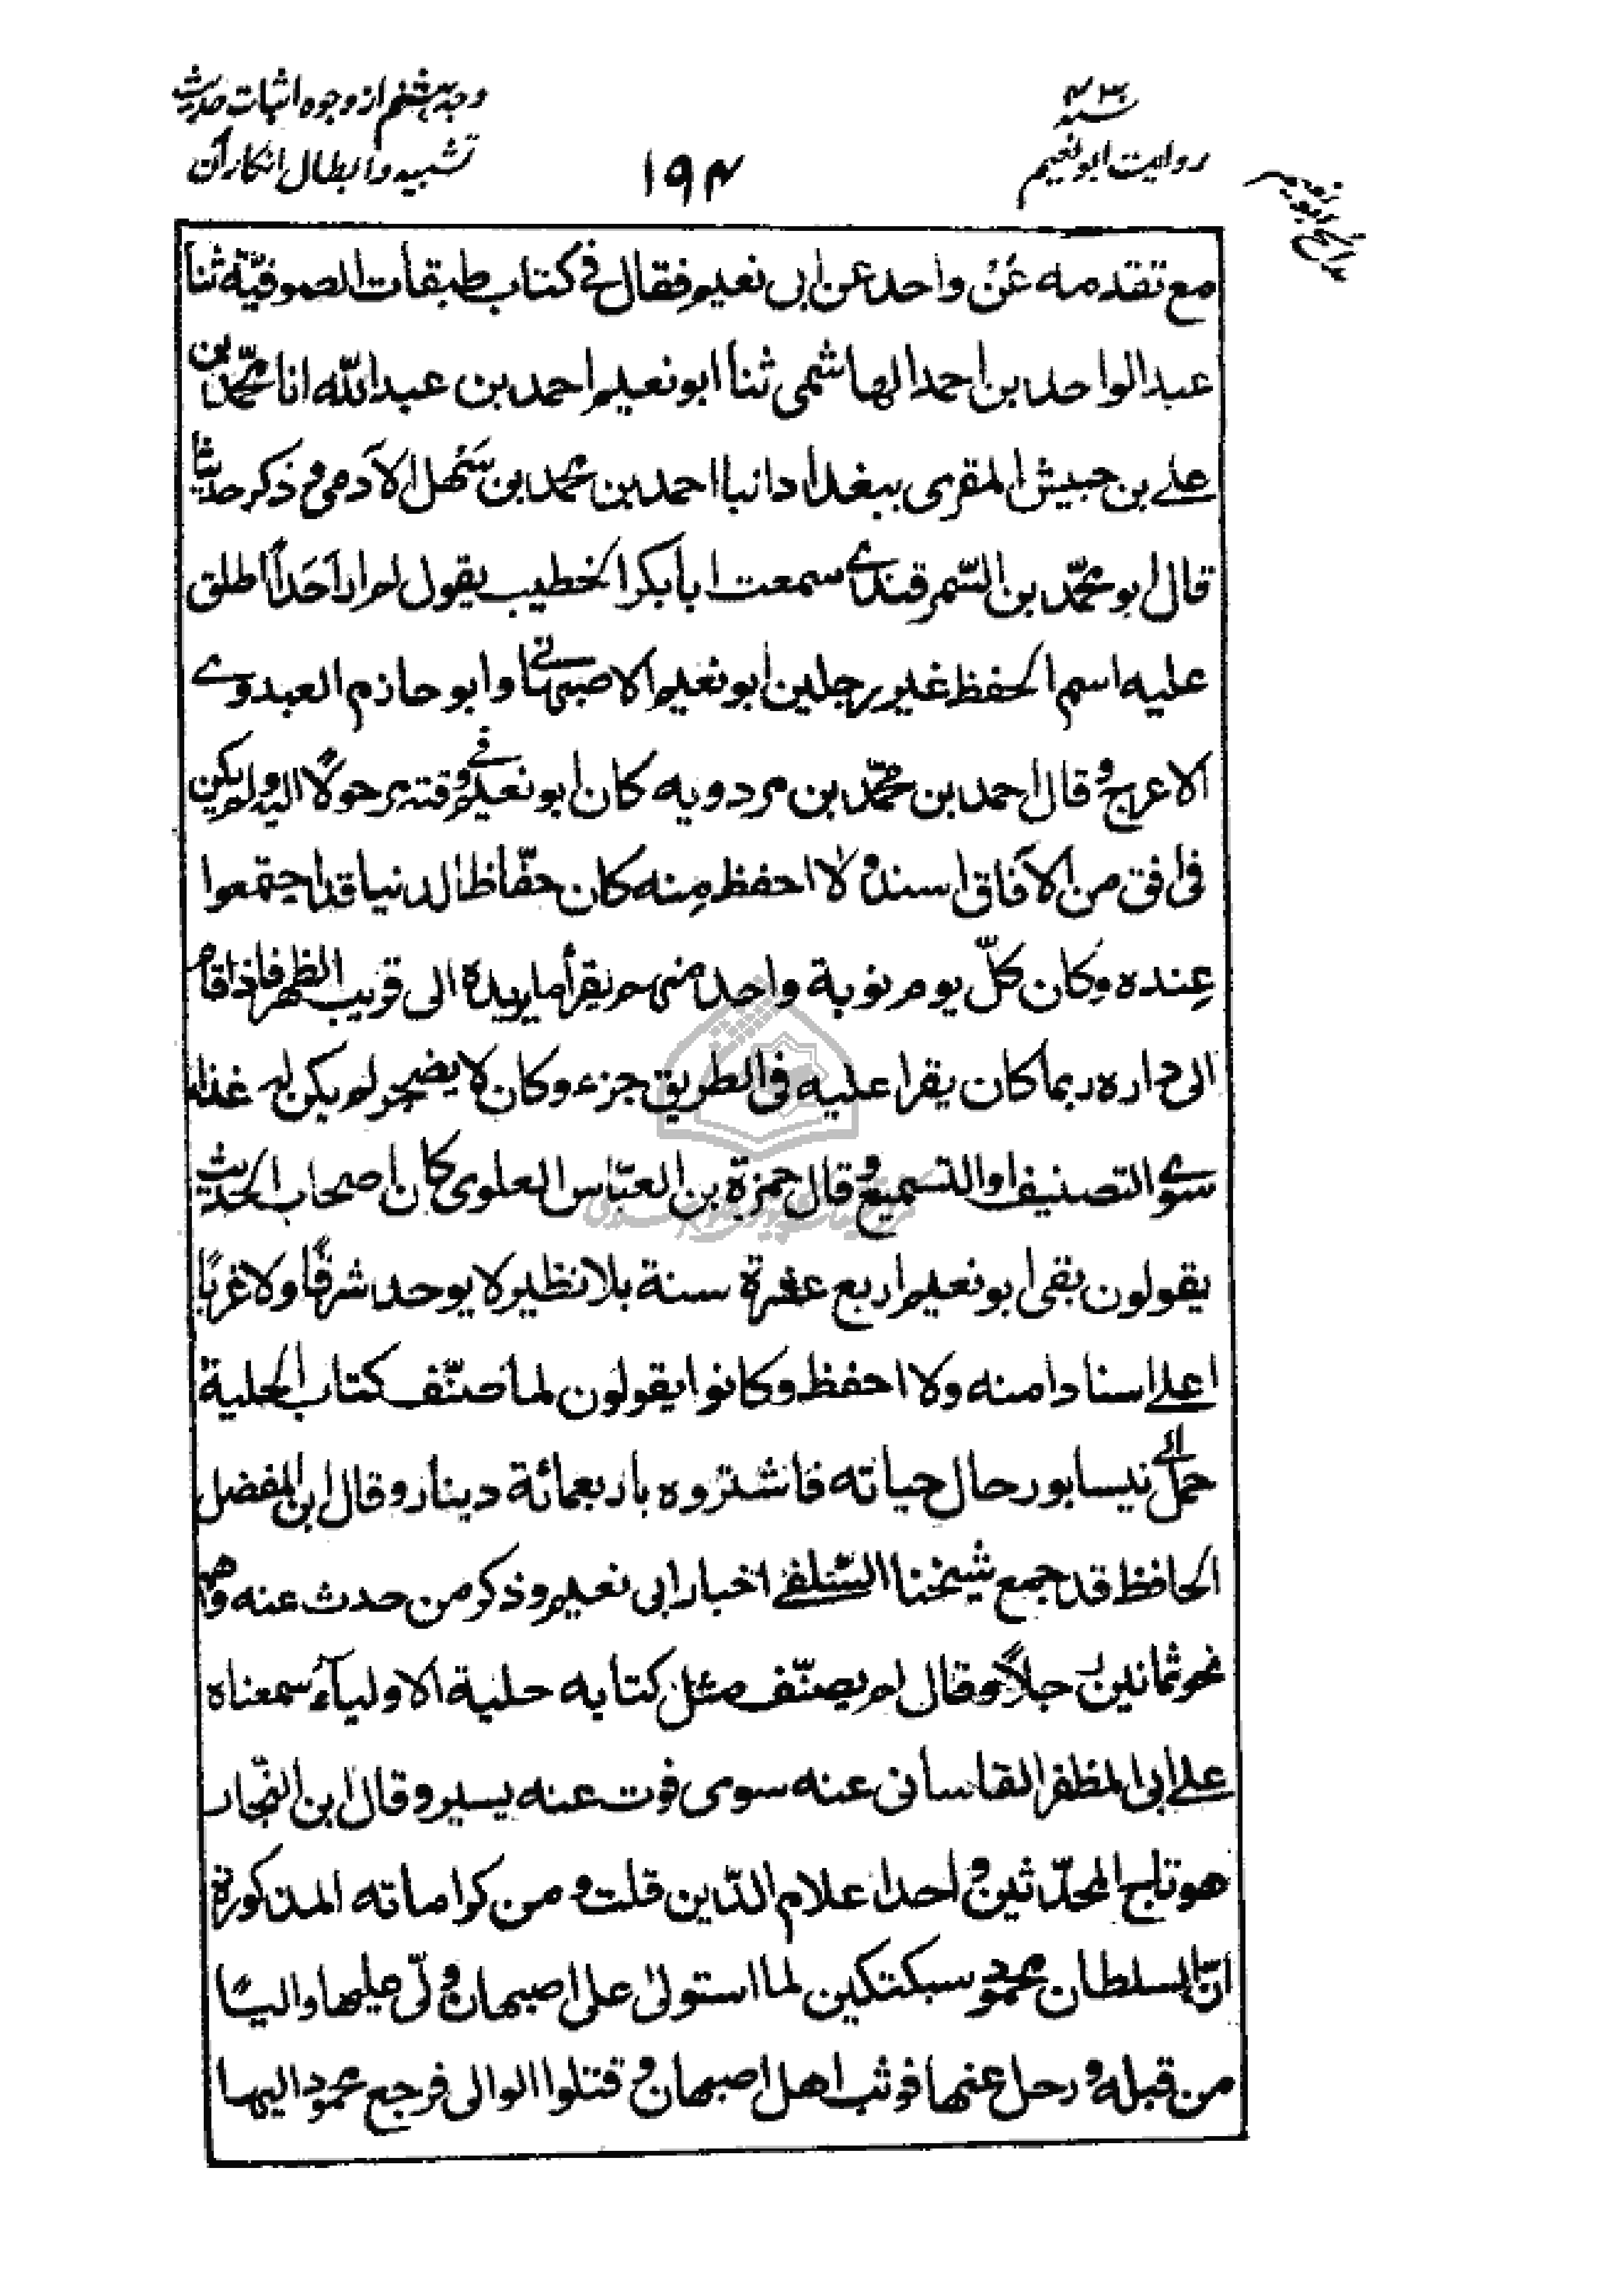 وجه هشتم از وجوه اثبات حدیث
تشبیه و ابطال انکار آن
۱۹۴
سنه ۴۳۰
روایت ابو نعیم
مع تقدمه عن واحد عن ابی نعیم فقال فی کتاب طبقات الصوفیّة ثنا
عبد الواحد بن احمد الهاشمی ثنا ابو نعیم احمد بن عبد اللّه انا محمّد بن
علے بن حبیش المقری ببغداد انبا احمد بن محمد بن سَهْل الآدمی و ذکر حدیثا
قال ابو محمّد بن السّمرقندے سمعت ابا بکر الخطیب یقول لم ار اَحَداً اطلق
علیه اسم الحفظ غیر رجلین ابو نعیم الاصبهانے و ابو حازم العبدوے
الاعرج و قال احمد بن محمّد بن مردویه کان ابو نعیم فے وقته مرحولًا الیه و لم یکن
فی افق من الآفاق اسند و لا احفظ مِنه کان حفّاظ الدنیا قد اجتمعوا
عِنده و کان کلّ یوم نوبة واحد منهم یقرأ ما یریده الی قریب الظهر فاذا قام
الی داره ربما کان یقرا علیه فی الطریق جزء و کان لا یضجر لم یکن له غذاء
سوے التصنیف او التسمیع و قال حمزة بن العبّاس العلوی کان اصحاب الحدیث
یقولون بقی ابو نعیم اربع عشرة سنة بلا نظیر لا یوحد شرقًا و لا غربًا
اعلے اسنادا منه و لا احفظ و کانوا یقولون لما صنّف کتاب الحلیة
حمل الے نیسابور حال حیاته فاشتروه باربعمائة دینار و قال ابن المفضل
الحافظ قد جمع شیخنا السّلفے اخبار ابی نعیم و ذکر من حدث عنه و هم
نحو ثمانین رجلاً و قال لم یصنّف مثل کتابه حلیة الاولیآء سمعناه
علے ابی المظفر القاسانی عنه سوی فوت عنه یسیر و قال ابن النجّار
هو تاج المحدّثین و احد اعلام الدّین قلت و من کراماته المذکورة
انّ السلطان محمود سبکتکین لما استولی علی اصبهان و ولّی علیها والیًا
من قبله و رحل عنها فوثب اهل اصبهان و قتلوا الوالی فرجع محمود الیها